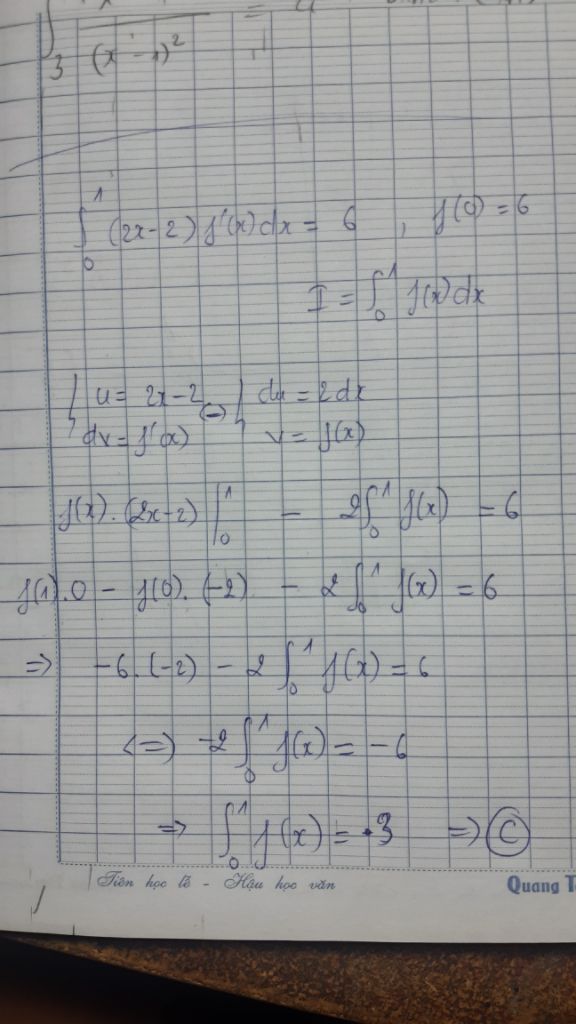 ∫₃ (x - 1)² =
∫₀¹ (2x-2) f'(x) dx = 6 , f(0) = 6
I = ∫₀¹ f(x) dx
{ u = 2x-2 (=) { du = 2dx
dv = f'(x) v = f(x)
f(x) . (2x-2) |₀¹ - 2∫₀¹ f(x) = 6
f(1).0 - f(0).(-2) - 2∫₀¹ f(x) = 6
=> -6.(-2) - 2∫₀¹ f(x) = 6
<=> -2∫₀¹ f(x) = -6
=> ∫₀¹ f(x) = 3 => C
Tiên học lễ - Hậu học văn
Quang